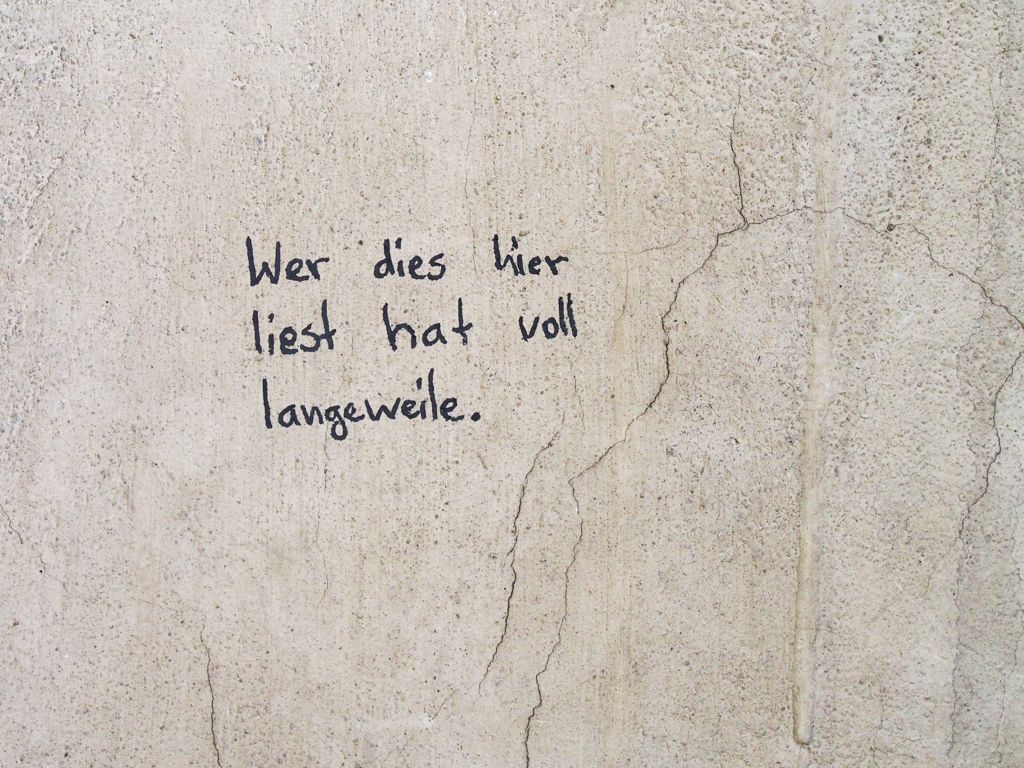 Wer dies hier
liest hat voll
langeweile.